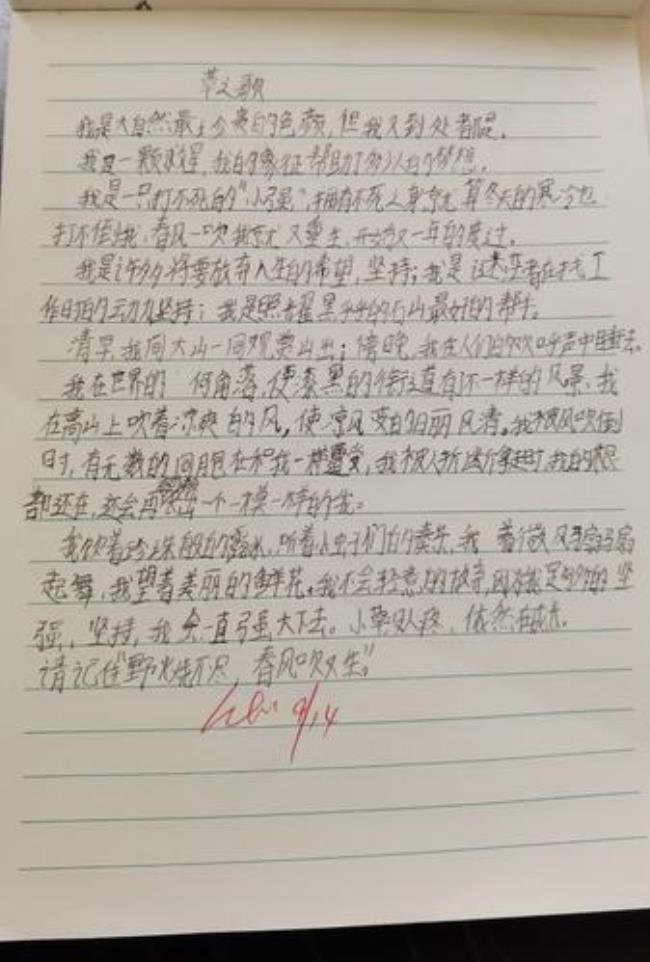 草之歌
我是大自然最土今贵的色颜，但我又到处都是。
我是一颗救星，我的象征帮助了多少人的梦想。
我是一只打不死的“小强”，拥有不死人身就算冬天的寒冷也
打不倒我，春风一吹我就又重生，开始又一年的度过。
我是许多将要放弃人生的希望，坚持；我是这些在找工
作日的动力坚持；我是照耀黑乎乎的石山最好的帮手。
清早，我同大山一同观赏山出；傍晚，我在人们的吹呼声中睡去。
我在世界的 何角落，使漆黑的街道有不一样的风景，我
在高山上吹着凉爽的风，使凉风变的阳丽风清。我被风吹倒
时，有无数的同胞在和我一样感受，我被人折断拿走时，我的根
都还在，还会再 出一个一模一样的我。
我饮着珍珠般的露水，听着小虫子们的奏乐，我 着微风翩翩
起舞，我望着美丽的鲜花。我不会轻意的放弃，因为我足够的坚
强，坚持，我会一直强大下去。小草 ，依然 。
请记住“野火烧不尽，春风吹又生”。
9/14